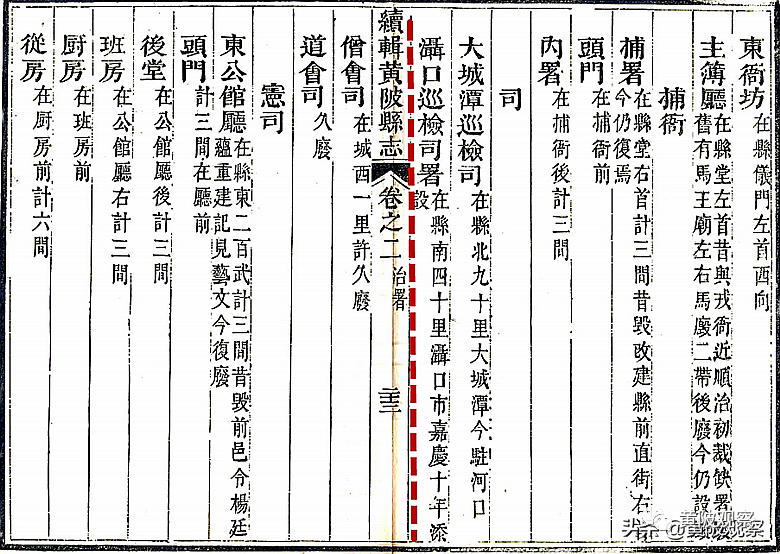 東衙坊 在縣儀門左首西向
主簿廳 在縣堂左首昔與戎衙近順治初裁缺署
舊有馬王廟左右馬廄二帶後廢今仍設
捕衙
捕署 在縣堂右首計三間昔毀改建縣前直街右
今仍復焉
頭門 在捕衙前
內署 在捕衙後計三間
司
大城潭巡檢司 在縣北九十里大城潭今駐河口
灄口巡檢司署 在縣南四十里灄口市嘉慶十年添
設
續輯黃陂縣志 卷之二 治署 二十三
僧會司 在城西一里許久廢
道會司 久廢
憲司
東公館廳 在縣東二百武計三間昔毀前邑令楊廷
蘊重建記見藝文今復廢
頭門 計三間在廳前
後堂 在公館廳後計三間
班房 在公館廳右計三間
厨房 在班房前
從房 在厨房前計六間
黃陂观察
头条 @黄陂观察